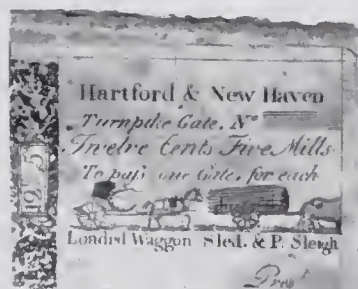 Hartford & New Haven
Turnpike Gate. Nº
Twelve Cents Five Mills
To paſs one Gate, for each
Loaded Waggon Sled. & P. Sleigh
Presᵗ
12 5